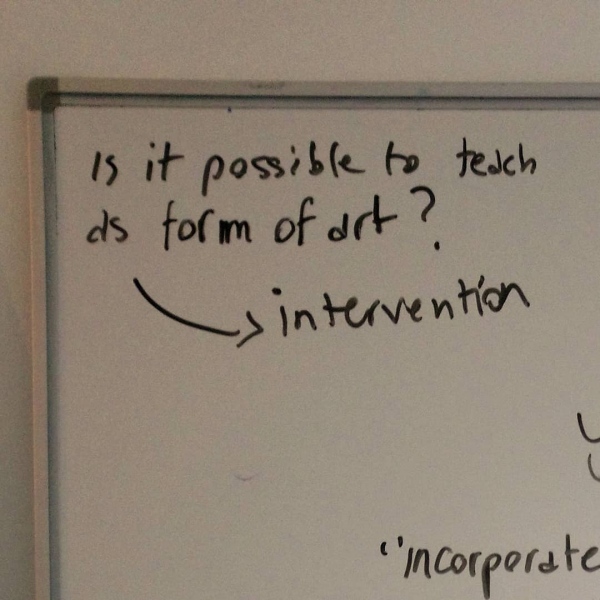 Is it possible to teach
as form of art?
intervention
"incorporate